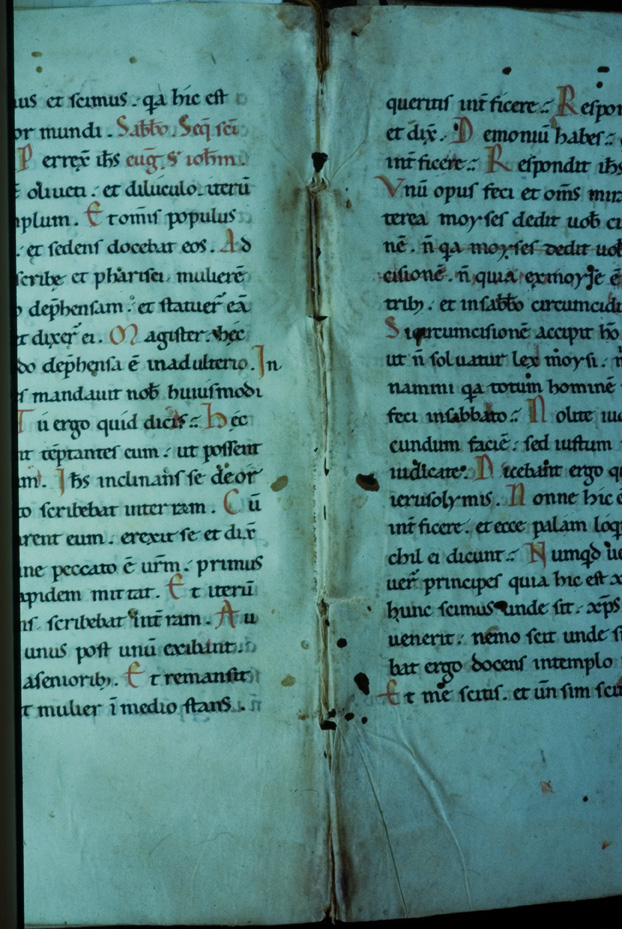 us et scimus. qa hic est
or mundi. Sabbo. Seq. sci
Perrex̄ ihs euḡ. s̄ iohm̄.
oliueti. et diluculo. iterū
mplum. Et omīs populus
. et sedens docebat eos. Ad
scribe et pharisei mulierē
dep̄hensam. et statuer̄ eā
t dixer̄ ei. Magister. hec
do dep̄hensa ē in adulterio. In
s mandauit nob̄ huiusmodi
Tu ergo quid dicis: Hec
nt tēptantes eum. ut possent
Ihs inclinans se deor̄
to scribebat inter ram. Cū
arent eum. erexit se et dix̄
ine peccato ē ur̄m. primus
apidem mittat. Et iterū
ns scribebat int̄ ram. Au
unus post unū exibant.
a seniorib;. Et remansit
t mulier ī medio stans.
queritis int̄ficere: Respon
et dix̄. Demoniū habes:
int̄ficere: Respondit ihs
Vnū opus feci et om̄s mir
terea moyses dedit uob̄ ci
nē. n̄ qa moyses dedit uob
cisionē. n̄ quia ex moyse ē
trib;. et in sabbo circumcidi
Si circumcisionē accipit ho
ut n̄ soluatur lex moysi.
namini qa totum hominē
feci in sabbato: Nolite iu
cundum faciē: sed iustum
iudicate. Dicebant ergo q
ierusolymis. Nonne hic ē
int̄ficere. et ecce palam loq
chil ei dicunt: Numqd ue
uer̄ principes quia hic est x
hunc scimus unde sit. xp̄s
uenerit. nemo scit unde si
bat ergo docens in templo
Et me scitis. et un̄ sim sci